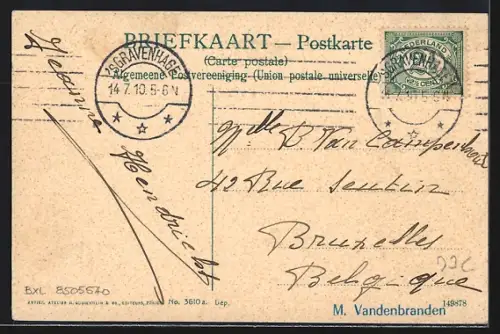 BRIEFKAART — Postkarte
(Carte postale)
Algemeene Postvereeniging (Union postale universelle)
'SGRAVENHAGE
14.7.10. 5-6 N
NEDERLAND
'SGRAVENHAGE
Mlle B Van Campenhout
42 Rue
Bruxelles
Belgique
Hendricht
BXL 8505570
No. 3610a. Dep.
M. Vandenbranden
149878